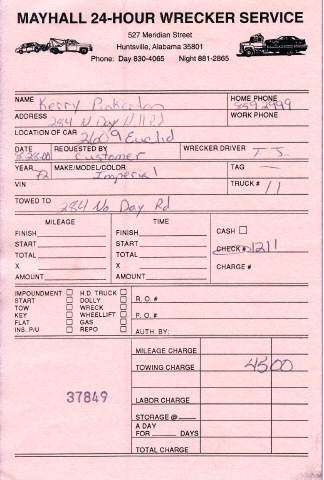 MAYHALL 24-HOUR WRECKER SERVICE
527 Meridian Street
Huntsville, Alabama 35801
Phone: Day 830-4065 Night 881-2865
NAME Kerry Pinkerton HOME PHONE
ADDRESS 284 N Day Rd WORK PHONE
LOCATION OF CAR 2609 Euclid
DATE REQUESTED BY Customer WRECKER DRIVER T J
YEAR 72 MAKE/MODEL/COLOR Imperial TAG —
VIN TRUCK # 11
TOWED TO 284 No Day Rd
MILEAGE TIME CASH
FINISH FINISH
START START CHECK # 1211
TOTAL TOTAL
X X CHARGE #
AMOUNT AMOUNT
IMPOUNDMENT H.D. TRUCK R.O. #
START DOLLY
TOW WRECK
KEY WHEELLIFT P.O. #
FLAT GAS
INS. P/U REPO AUTH. BY:
MILEAGE CHARGE
TOWING CHARGE 45 00
37849
LABOR CHARGE
STORAGE @
A DAY
FOR DAYS
TOTAL CHARGE